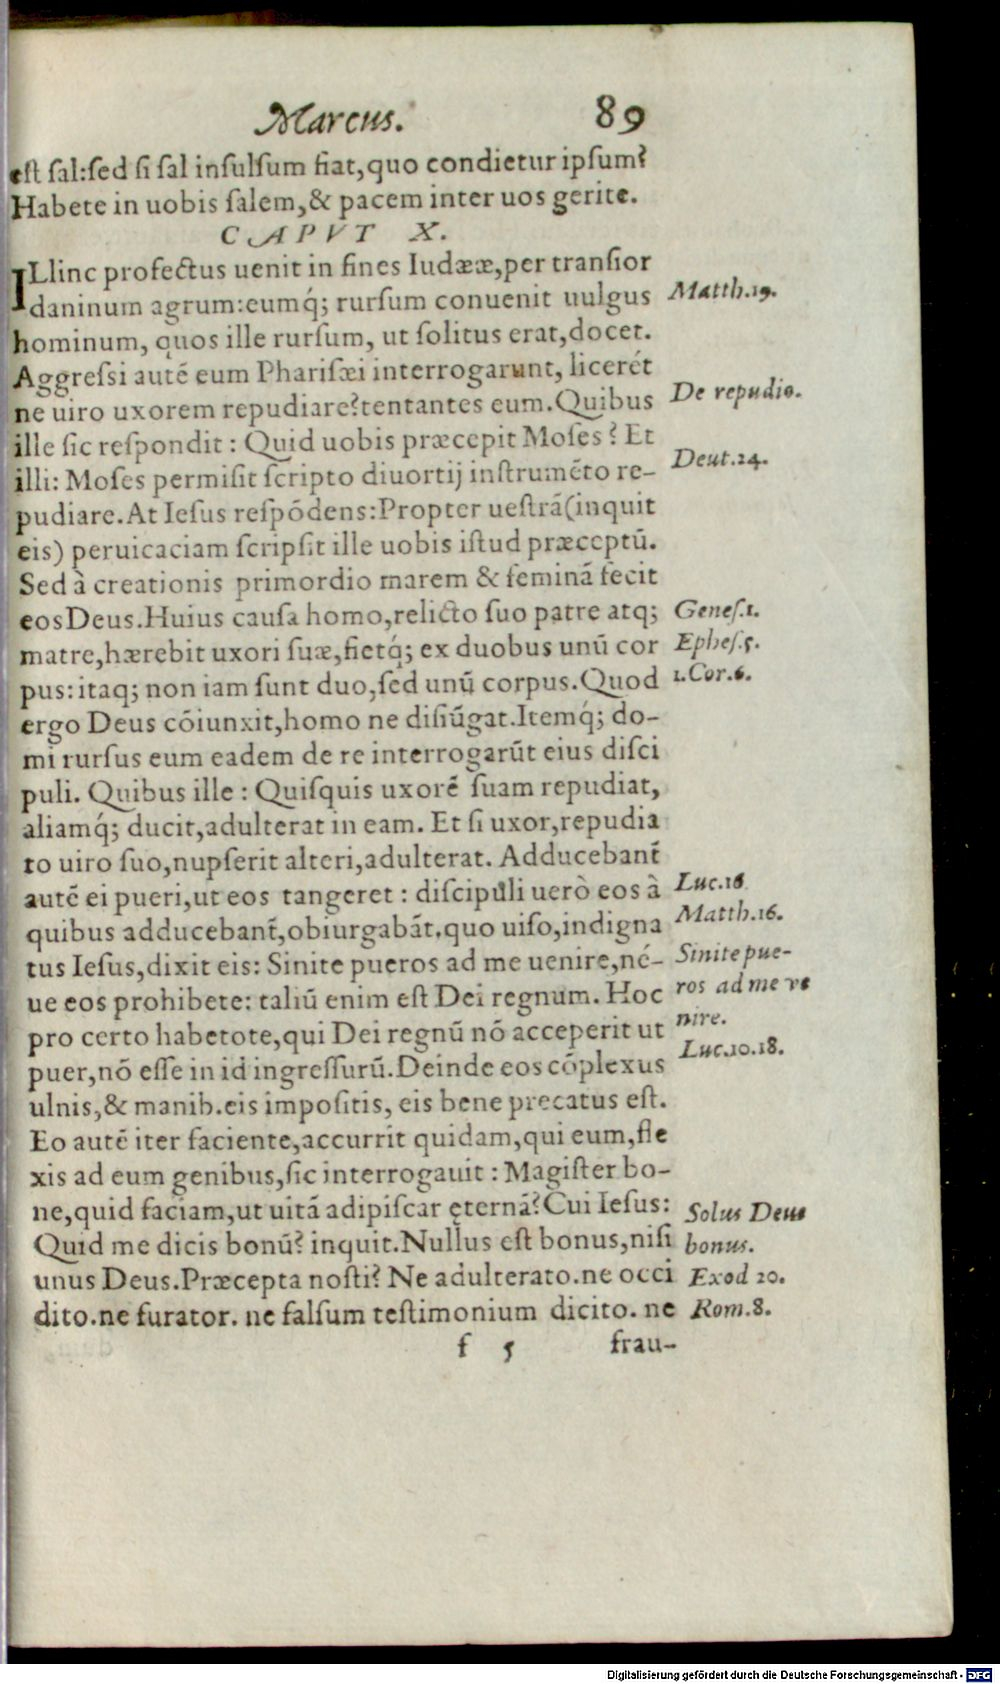 Marcus. 89
est sal:sed si sal insulsum fiat,quo condietur ipsum?
Habete in uobis salem,& pacem inter uos gerite.
CAPVT X.
ILlinc profectus uenit in fines Iudææ,per transior
daninum agrum:eumq́; rursum conuenit uulgus
Matth.19.
hominum, quos ille rursum, ut solitus erat,docet.
Aggressi autẽ eum Pharisæi interrogarunt, licerét
ne uiro uxorem repudiare?tentantes eum.Quibus
De repudio.
ille sic respondit: Quid uobis præcepit Moses? Et
illi: Moses permisit scripto diuortij instrumẽto re-
Deut.24.
pudiare.At Iesus respõdens:Propter uestrã(inquit
eis) peruicaciam scripsit ille uobis istud præceptũ.
Sed à creationis primordio marem & feminã fecit
eos Deus.Huius causa homo,relicto suo patre atq;
Genes.1.
matre,hærebit uxori suæ,fietq́; ex duobus unũ cor
Ephes.5.
pus: itaq; non iam sunt duo,sed unũ corpus.Quod
1.Cor.6.
ergo Deus cõiunxit,homo ne disiũgat.Itemq́; do-
mi rursus eum eadem de re interrogarũt eius disci
puli. Quibus ille: Quisquis uxorẽ suam repudiat,
aliamq́; ducit,adulterat in eam. Et si uxor,repudia
to uiro suo,nupserit alteri,adulterat. Adducebant̃
autẽ ei pueri,ut eos tangeret: discipuli uerò eos à
Luc.18
quibus adducebant̃,obiurgabãt.quo uiso,indigna
Matth.16.
tus Iesus,dixit eis: Sinite pueros ad me uenire,né-
Sinite pue-
ue eos prohibete: taliũ enim est Dei regnum. Hoc
ros ad me ve
pro certo habetote,qui Dei regnũ nõ acceperit ut
nire.
puer,nõ esse in id ingressurũ.Deinde eos cõplexus
Luc.10.18.
ulnis,& manib.eis impositis, eis bene precatus est.
Eo autẽ iter faciente,accurrit quidam,qui eum,fle
xis ad eum genibus,sic interrogauit: Magister bo-
ne,quid faciam,ut uitã adipiscar ęternã?Cui Iesus:
Solus Deus
Quid me dicis bonũ? inquit.Nullus est bonus,nisi
bonus.
unus Deus.Præcepta nosti? Ne adulterato.ne occi
Exod 20.
dito.ne furator. ne falsum testimonium dicito. ne
Rom.8.
f 5 frau-
Digitalisierung gefördert durch die Deutsche Forschungsgemeinschaft - DFG